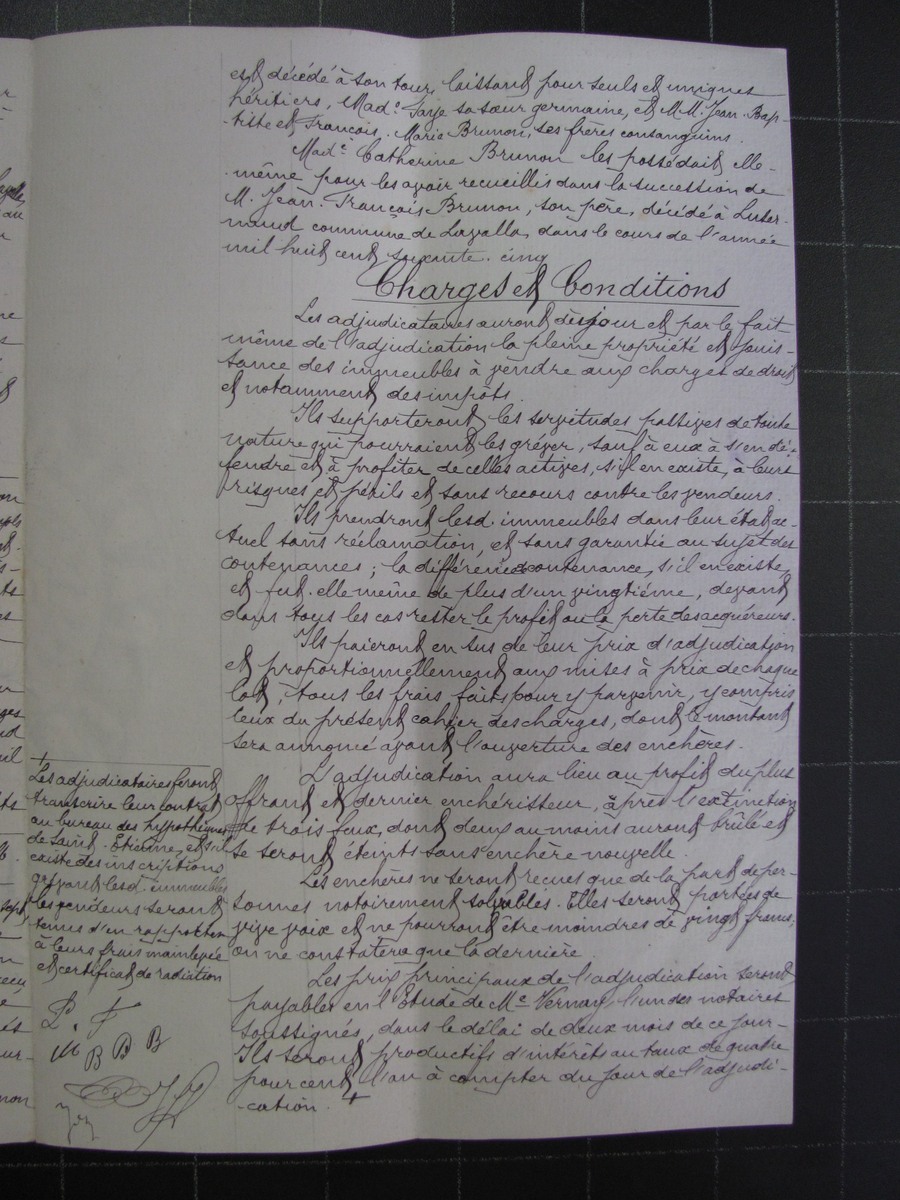 est décédé à son tour, laissant pour seuls et uniques
héritiers, Mad.e Faye sa sœur germaine, et M.M. Jean-Bap-
-tiste et François-Marie Brunon, ses frères consanguins.
Mad.e Catherine Brunon les possédait elle-
-même pour les avoir recueillis dans la succession de
M. Jean-François Brunon, son père, décédé à Luzer-
naud commune de Lavalla, dans le cours de l'année
mil huit cent soixante-cinq
Charges et Conditions
Les adjudicataires auront dès ce jour et par le fait
même de l'adjudication la pleine propriété et jouis-
sance des immeubles à vendre aux charges de droit
et notamment des impôts.
Ils supporteront les servitudes passives de toute
nature qui pourraient les gréver, sauf à eux à s'en dé-
fendre et à profiter de celles actives, s'il en existe, à leurs
risques et périls et sans recours contre les vendeurs.
Ils prendront lesd. immeubles dans leur état ac-
tuel sans réclamation, et sans garantie au sujet des
contenances ; la différence de contenance, s'il en existe,
et fut-elle même de plus d'un vingtième, devant
dans tous les cas rester le profit ou la perte des acquéreurs.
Ils paieront en sus de leur prix d'adjudication
et proportionnellement aux mises à prix de chaque
lot, tous les frais faits pour y parvenir, y compris
ceux du présent cahier des charges, dont le montant
sera annoncé avant l'ouverture des enchères.
L'adjudication aura lieu au profit du plus
offrant et dernier enchérisseur, après l'extinction
de trois feux, dont deux au moins auront brûlé et
se seront éteints sans enchère nouvelle.
Les enchères ne seront reçues que de la part de per-
sonnes notoirement solvables. Elles seront portées de
vive voix et ne pourront être moindres de vingt francs,
on ne constatera que la dernière
Les prix principaux de l'adjudication seront
payables en l'Etude de Me Vernay, l'un des notaires
soussignés, dans le délai de deux mois de ce jour-
Ils seront productifs d'intérêts au taux de quatre
pour cent l'an à compter du jour de l'adjudi-
-cation. +
+
Les adjudicataires feront
transcrire leur contrat
au bureau des hypothèques
de Saint-Etienne, et s'il
existe des inscriptions
grevant lesd. immeubles
les vendeurs seront
tenus d'en rapporter
à leurs frais mainlevée
et certificat de radiation
L. F
M B B B